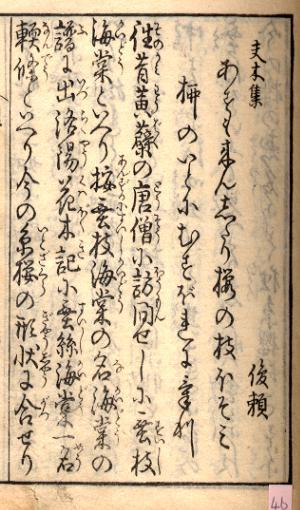 夫木集
あすも来んしたり桜の枝ほそミ
俊頼
柳のいとにむすばれにけり
往昔黄蘗の唐僧に訪問せしに垂枝
海棠といへり按垂枝海棠の名海棠の
譜に出洛陽花木記に垂絲海棠一名
軟條といへり今の糸桜の形状に合せり
46